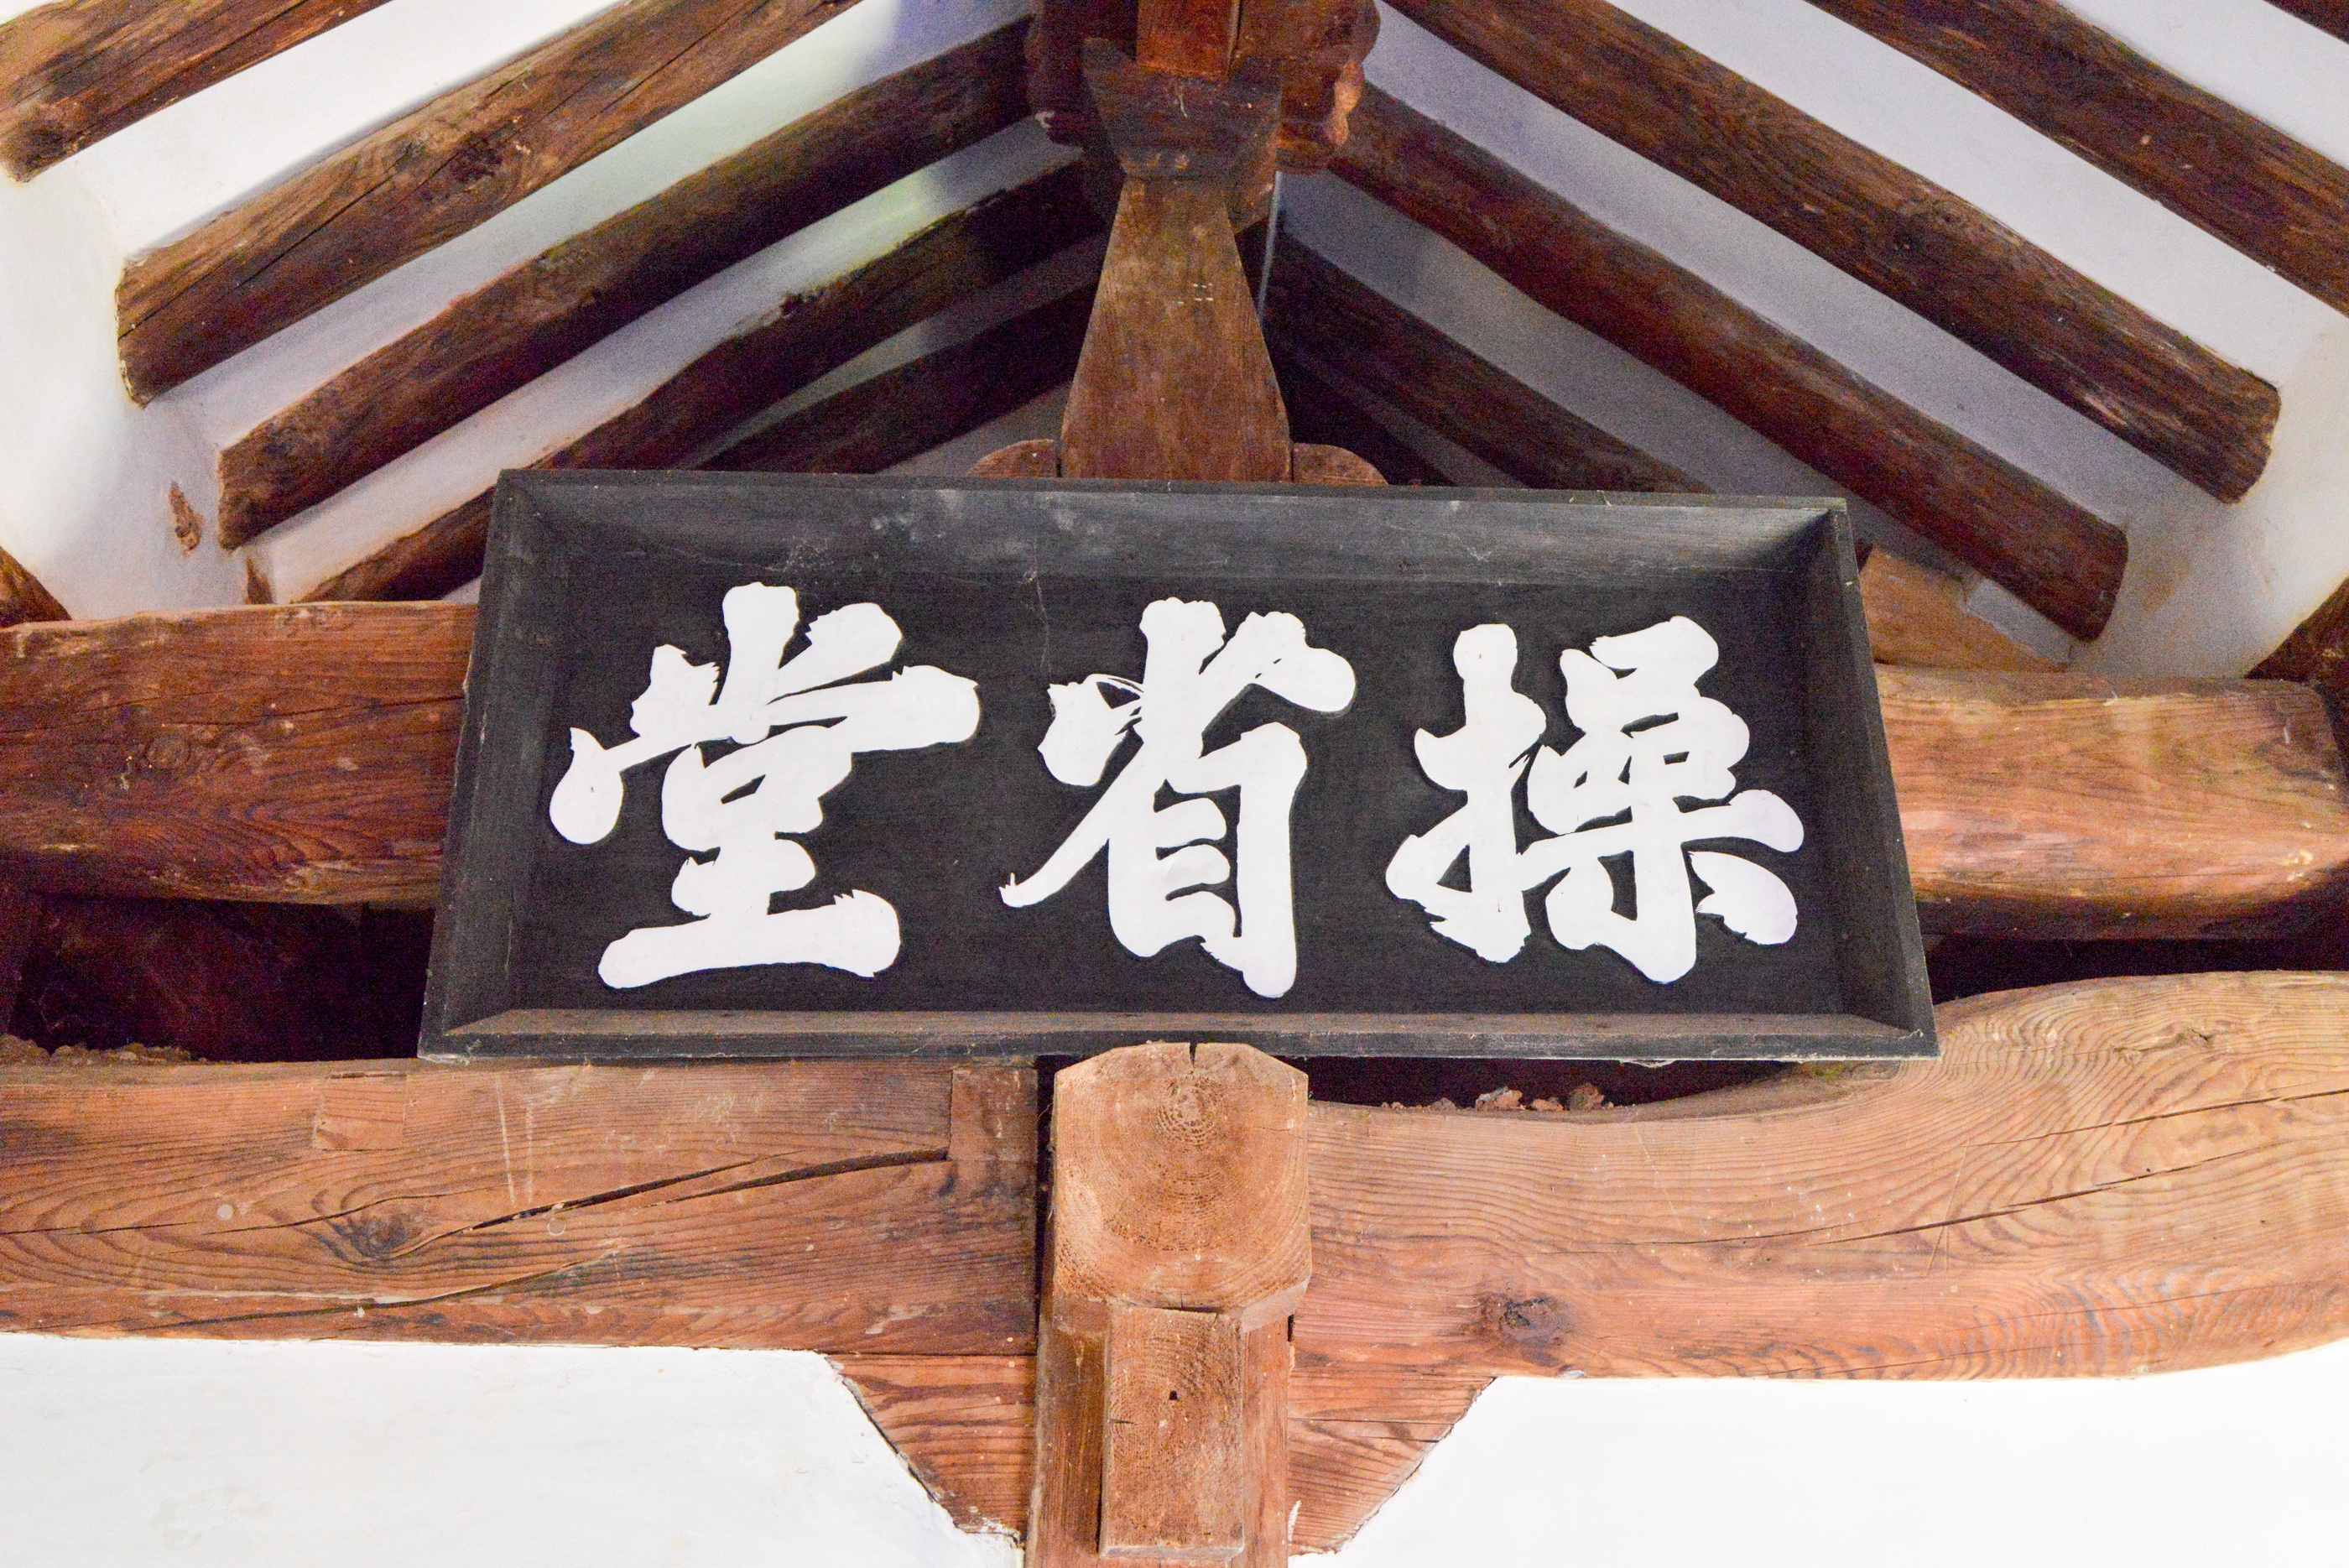 操省堂